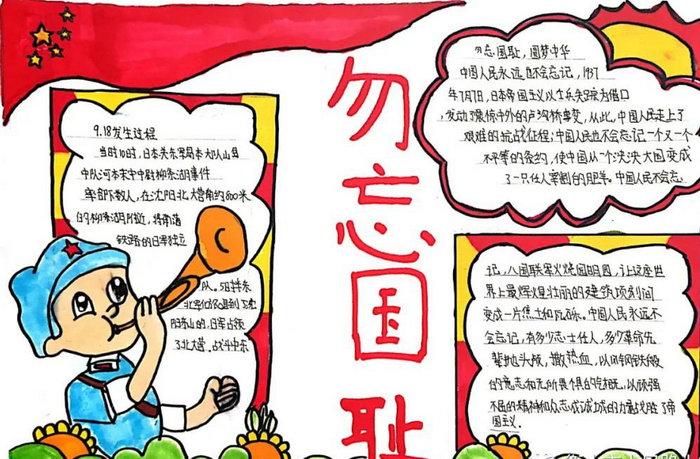 勿忘国耻
9.18发生过程
当时10时，日本关东军岛本大队川岛
中队河本末守中尉柳条湖事件
率部下数人，在沈阳北大营南约800米
的柳条湖附近，将南满
铁路的
队。5日拂
日军占领
了北大营，战斗中东
勿忘国耻，圆梦中华
中国人民永远也不会忘记，1937
年7月7日，日本帝国主义以士兵失踪为借口
发动了震惊中外的卢沟桥事变，从此，中国人民走上了
艰难的抗战征程；中国人民也不会忘记一个又一个
不平等的条约，使中国从一个泱泱大国变成
了一只任人宰割的肥羊。中国人民不会忘
记，八国联军火烧圆明园，让这座世
界上最辉煌壮丽的建筑顷刻间
变成一片焦土和瓦砾。中国人民永远不
会忘记，有多少志士仁人，多少革命先
辈抛头颅，撒热血，以钢铁般
的意志和无所畏惧的气概，以顽强
不屈的精神和众志成城的力量战胜了帝
国主义。